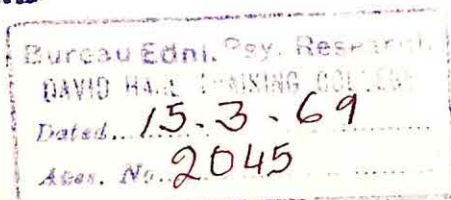 Bureau Ednl. Psy. Research
DAVID HARE TRAINING COLLEGE
Dated.. 15.3.69
Accs. No. 2045